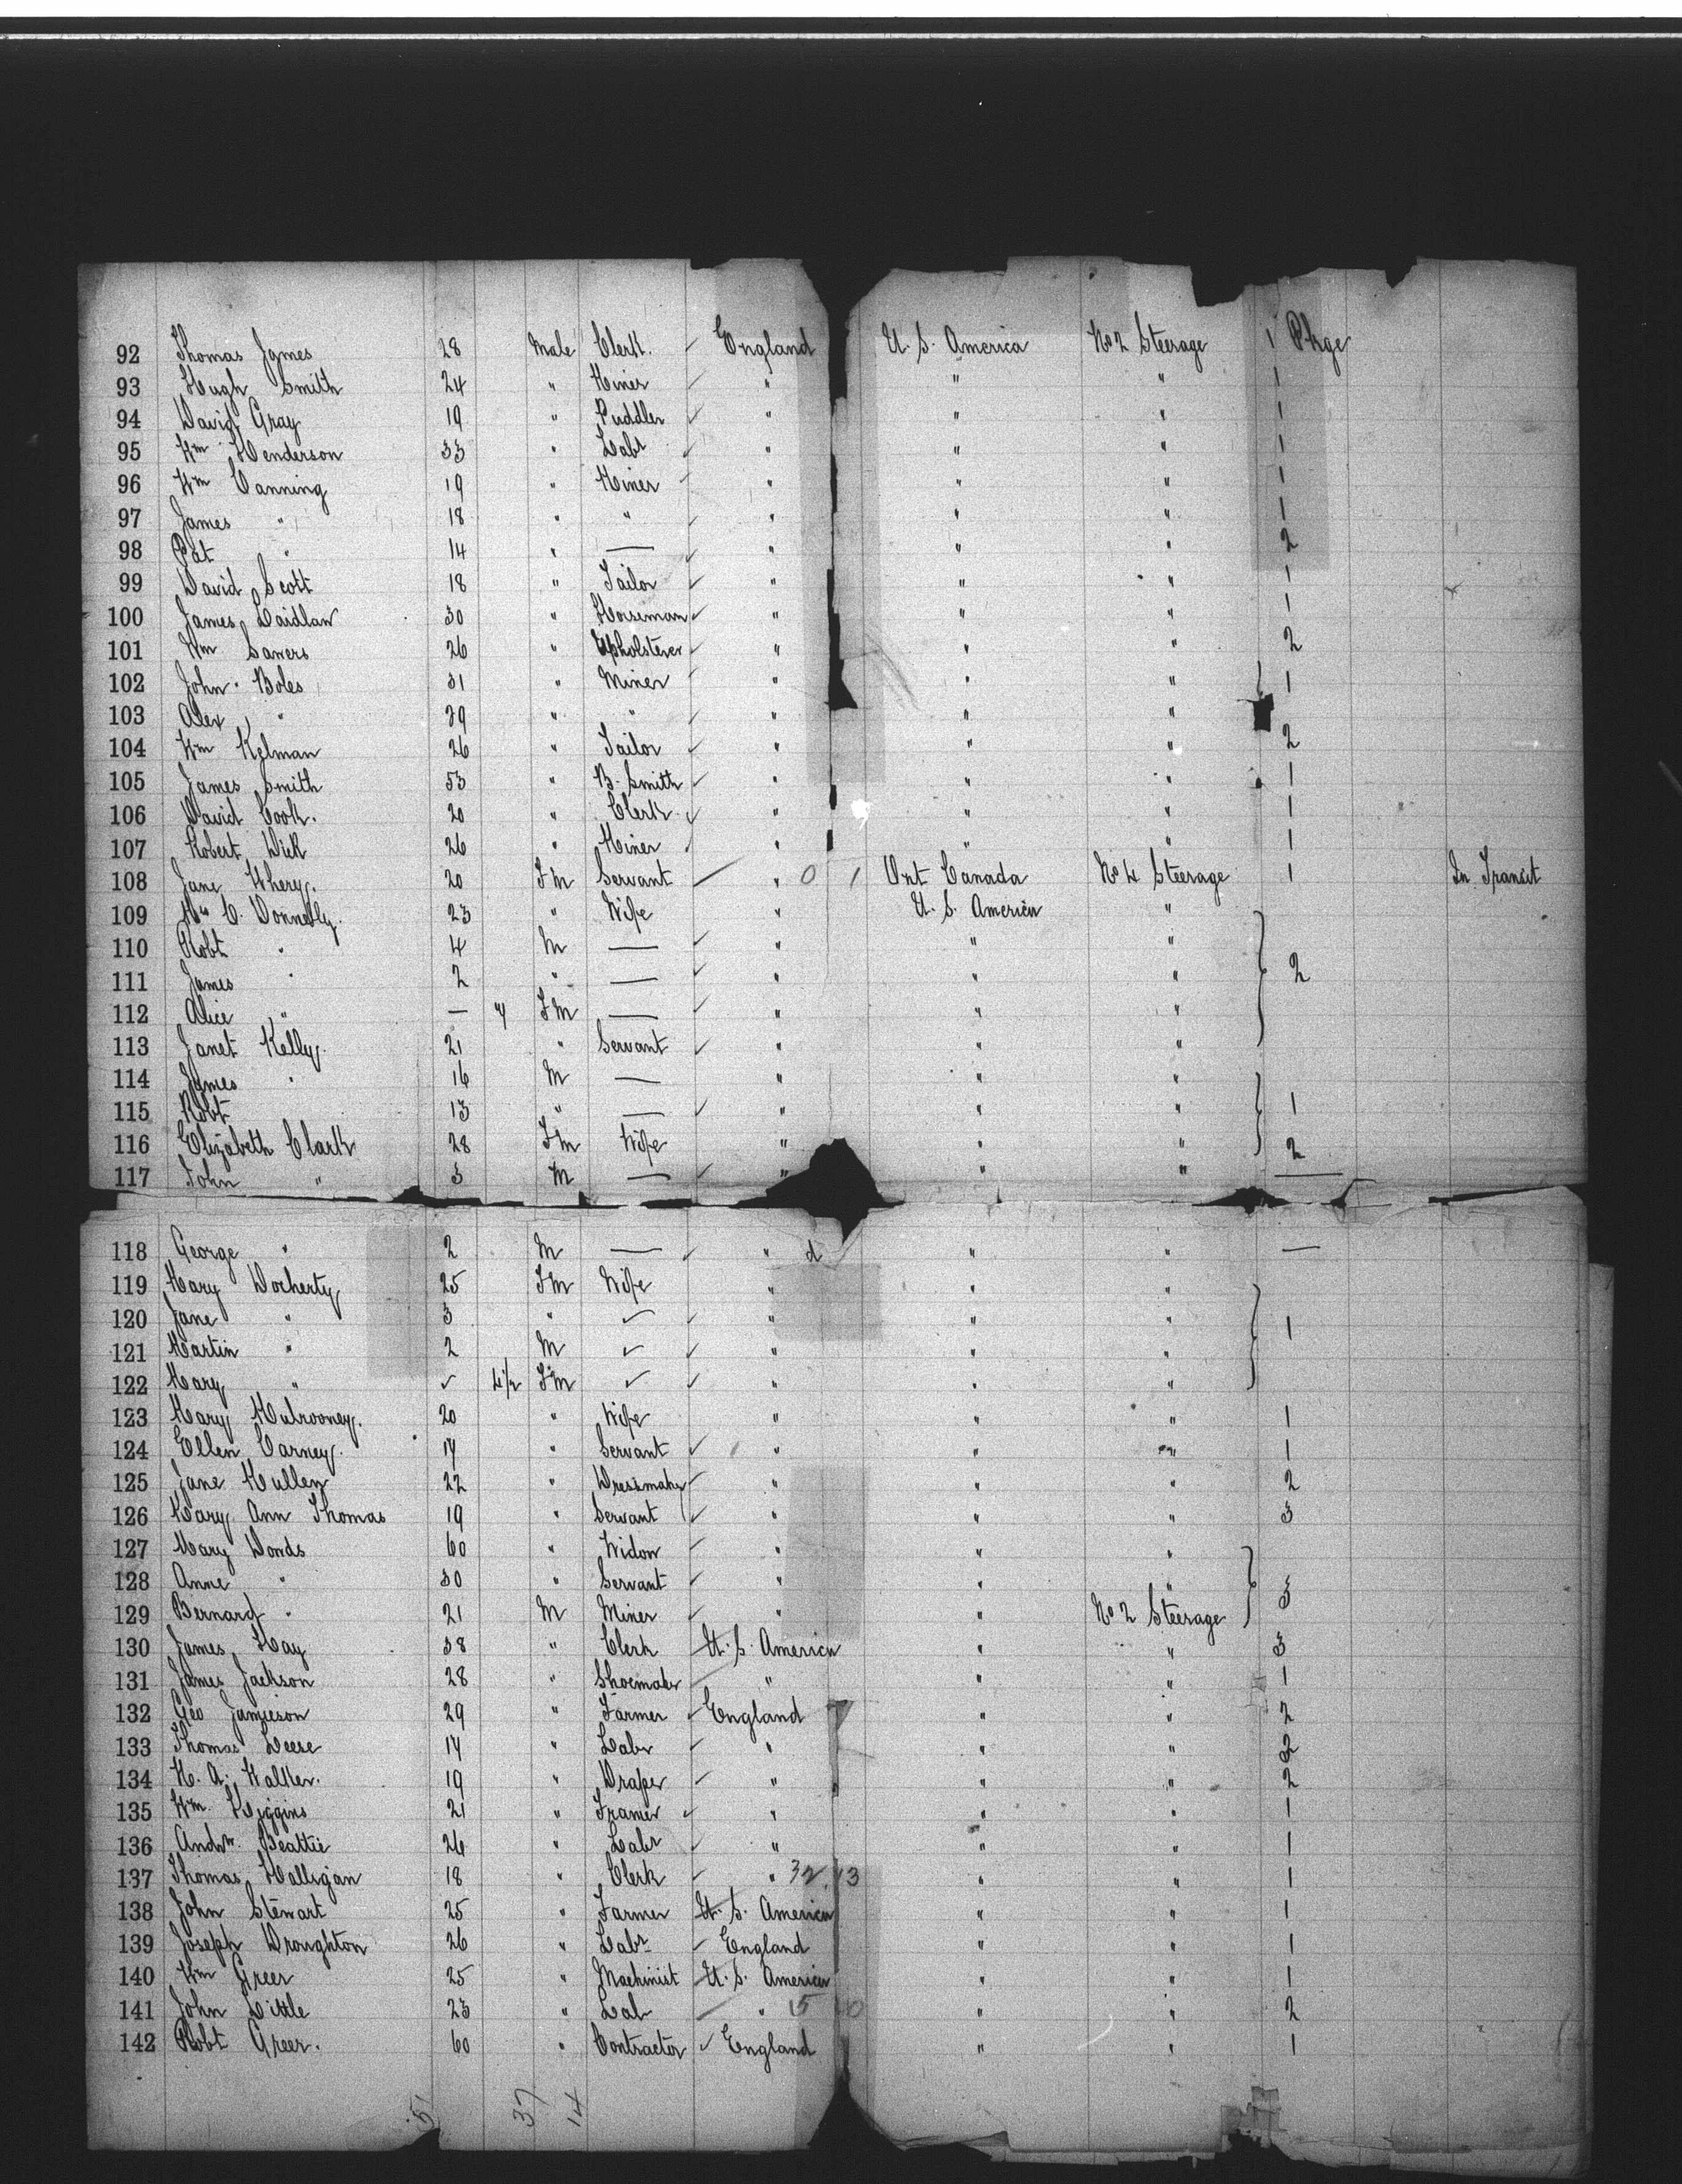 92 Thomas James 28 Male Clerk. England U.S. America No 2 Steerage 1 Pkge
93 Hugh Smith 24 " Miner " " " 1
94 David Gray 19 " Puddler " " " 1
95 Wm Henderson 33 " Labr " " " 1
96 Wm Canning 19 " Miner " " " 1
97 James " 18 " " " " " 1
98 Pat " 14 " — " " " 2
99 David Scott 18 " Tailor " " " 1
100 James Laidlaw 30 " Horseman " " " 1
101 Wm Sawers 26 " Upholsterer " " " 2
102 John Boles 31 " Miner " " " 1
103 Alex " 39 " " " " "
104 Wm Kelman 26 " Tailor " " " 2
105 James Smith 53 " B. Smith " " " 1
106 David Cook. 20 " Clerk " " " 1
107 Robert Dick 26 " Miner " " " 1
108 Jane Whery. 20 Fm Servant " 0 1 Ont Canada No 4 Steerage 1 In Transit
109 Mrs C. Donnelly. 23 " Wife " U.S. America "
110 Robt " 4 M — " " "
111 James " 2 " — " " " 2
112 Alice " — Fm — " " "
113 Janet Kelly. 21 " Servant " " "
114 James " 16 M — " " "
115 Robt 13 " — " " " 1
116 Elizabeth Clark 28 Fm Wife " " " 2
117 John " 3 M — " " " —
118 George " 2 M — " d " " —
119 Mary Docherty 25 Fm Wife " " "
120 Jane " 3 " " " " 1
121 Martin " 2 M " " "
122 Mary " Fm " " "
123 Mary Mulrooney. 20 " Wife " " " 1
124 Ellen Carney. 17 " Servant " " " 1
125 Jane Mullen 22 " Dressmaker " " " 2
126 Mary Ann Thomas 19 " Servant " " " 3
127 Mary Donds 60 " Widow " " "
128 Anne " 30 " Servant " " " 3
129 Bernard " 21 M Miner " " No 2 Steerage
130 James Hay 38 " Clerk U.S. America " " 3
131 James Jackson 28 " Shoemaker " " " 1
132 Geo Jamieson 29 " Farmer England " " 2
133 Thomas Deese 17 " Labr " " " 2
134 H. A. Walker. 19 " Draper " " " 2
135 Wm Higgins 21 " Framer " " " 1
136 Andw. Beattie 24 " Labr " " " 1
137 Thomas Halligan 18 " Clerk " 32 13 " " 1
138 John Stewart 25 " Farmer U.S. America " " 1
139 Joseph Droughton 26 " Labr England " " 1
140 Wm Greer 25 " Machinist U.S. America " " 1
141 John Little 23 " Lab " 15 0 " " 2
142 Robt Greer. 60 " Contractor England " " 1
51 37 14